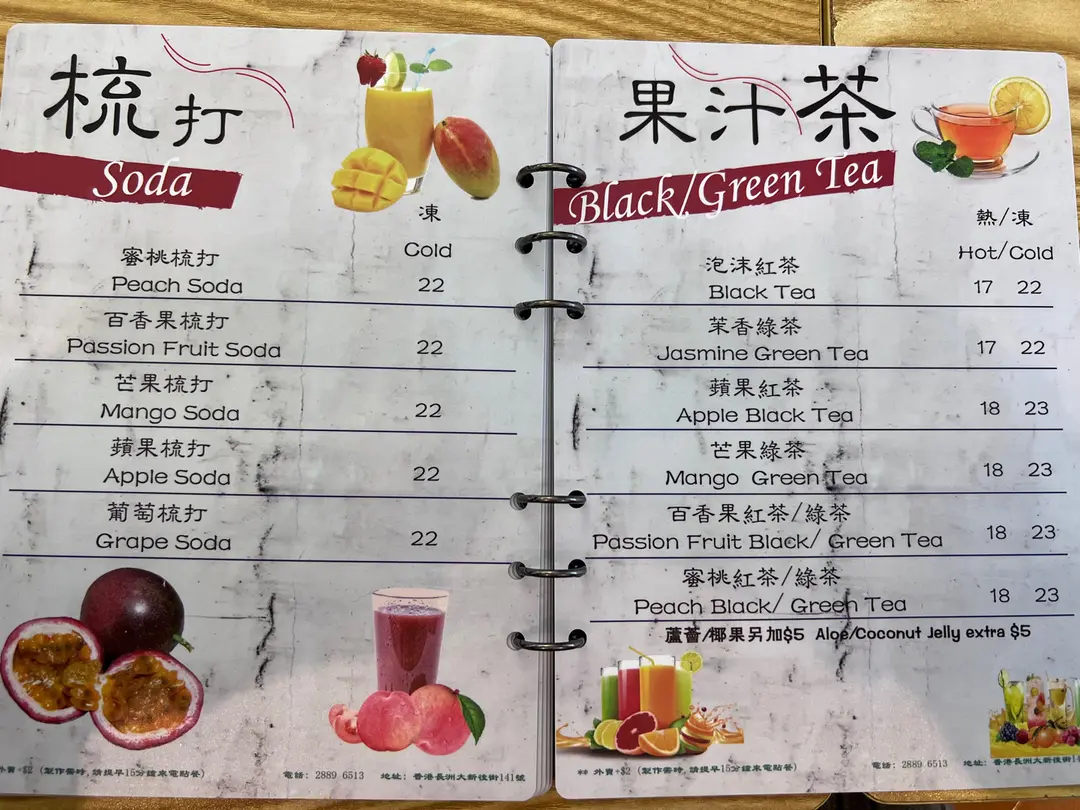 梳打
Soda
凍
Cold
蜜桃梳打
Peach Soda 22
百香果梳打
Passion Fruit Soda 22
芒果梳打
Mango Soda 22
蘋果梳打
Apple Soda 22
葡萄梳打
Grape Soda 22
外賣+$2 (製作需時, 請提早15分鐘來電點餐) 電話: 2889 6513 地址: 香港長洲大新後街141號
果汁茶
Black/Green Tea
熱/凍
Hot/Cold
泡沫紅茶
Black Tea 17 22
茉香綠茶
Jasmine Green Tea 17 22
蘋果紅茶
Apple Black Tea 18 23
芒果綠茶
Mango Green Tea 18 23
百香果紅茶/綠茶
Passion Fruit Black/ Green Tea 18 23
蜜桃紅茶/綠茶
Peach Black/ Green Tea 18 23
蘆薈/椰果另加$5 Aloe/Coconut Jelly extra $5
** 外賣+$2 (製作需時, 請提早15分鐘來電點餐) 電話: 2889 6513 地址: 香港長洲大新後街14